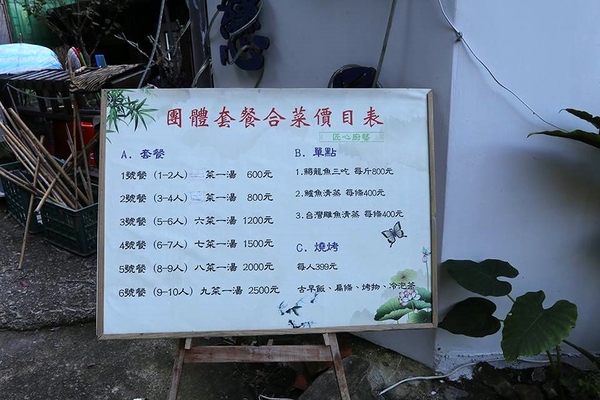 團體套餐合菜價目表
匠心廚藝
A. 套餐
1號餐 (1-2人) 二菜一湯 600元
2號餐 (3-4人) 三菜一湯 800元
3號餐 (5-6人) 六菜一湯 1200元
4號餐 (6-7人) 七菜一湯 1500元
5號餐 (8-9人) 八菜一湯 2000元
6號餐 (9-10人) 九菜一湯 2500元
B. 單點
1.鱘龍魚三吃 每斤800元
2.鱸魚清蒸 每條400元
3.台灣鯛魚清蒸 每條400元
C. 燒烤
每人399元
古早飯、扁條、烤物、冷泡茶